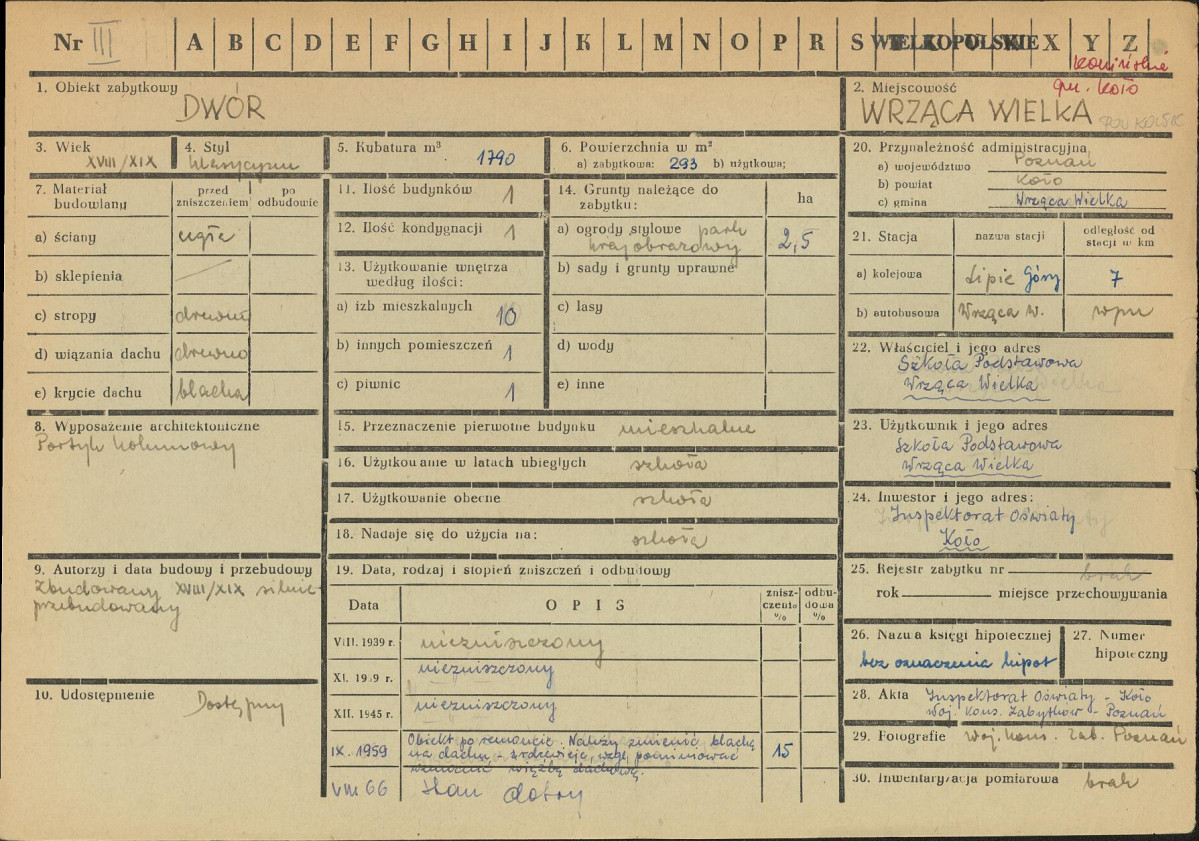 Nr III A B C D E F G H I J K L M N O P R S WIELKOPOLSKIE X Y Z
konińskie
gm. Koło
1. Obiekt zabytkowy
DWÓR
2. Miejscowość
WRZĄCA WIELKA
3. Wiek
XVIII/XIX
4. Styl
klasycyzm
5. Kubatura m³
1790
6. Powierzchnia w m²
a) zabytkowa: 293 b) użytkowa;
7. Materiał budowlany
przed zniszczeniem
po odbudowie
a) ściany cegła
b) sklepienia —
c) stropy drewno
d) wiązania dachu drewno
e) krycie dachu blacha
8. Wyposażenie architektoniczne
Portyk kolumnowy
9. Autorzy i data budowy i przebudowy
Zbudowany XVIII/XIX silnie
przebudowany
10. Udostępnienie
Dostępny
11. Ilość budynków 1
12. Ilość kondygnacji 1
13. Użytkowanie wnętrza
według ilości:
a) izb mieszkalnych 10
b) innych pomieszczeń 1
c) piwnic 1
14. Grunty należące do
zabytku:
ha
a) ogrody stylowe park
krajobrazowy 2,5
b) sady i grunty uprawne
c) lasy
d) wody
e) inne
15. Przeznaczenie pierwotne budynku mieszkalne
16. Użytkowanie w latach ubiegłych szkoła
17. Użytkowanie obecne szkoła
18. Nadaje się do użycia na: szkołę
19. Data, rodzaj i stopień zniszczeń i odbudowy
Data
OPIS
znisz-
czenia
%
odbu-
dowa
%
VIII. 1939 r. niezniszczony
XI. 1939 r. niezniszczony
XII. 1945 r. niezniszczony
IX. 1959 Obiekt po remoncie. Należy zmienić blachę 15
na dachu - zrdzewieje, wzgl. pominiować
wzmocnić więźbę dachową.
VIII 66 stan dobry
20. Przynależność administracyjna
a) województwo Poznań
b) powiat Koło
c) gmina Wrząca Wielka
21. Stacja
nazwa stacji
odległość od
stacji w km
a) kolejowa Lipie Góry 7
b) autobusowa Wrząca W. wpm
22. Właściciel i jego adres
Szkoła Podstawowa
Wrząca Wielka
23. Użytkownik i jego adres
Szkoła Podstawowa
Wrząca Wielka
24. Inwestor i jego adres:
Inspektorat Oświaty
Koło
25. Rejestr zabytku nr brak
rok miejsce przechowywania
26. Nazwa księgi hipotecznej
bez oznaczenia hipot
27. Numer
hipoteczny
28. Akta Inspektorat Oświaty - Koło
Woj. Kons. Zabytków - Poznań
29. Fotografie Woj. Kons. Zab. Poznań
30. Inwentaryzacja pomiarowa brak